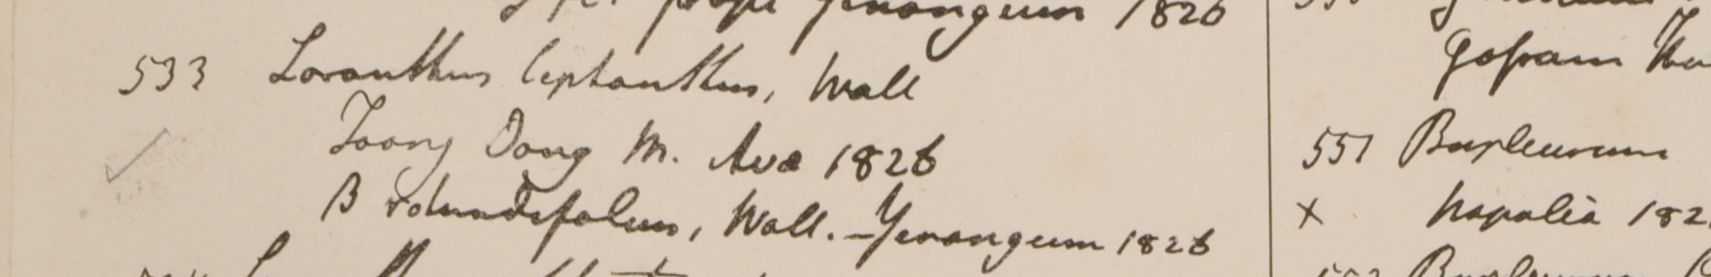 prope Yenangeum 1826
533 Loranthus leptanthus, Wall
Toong Dong M. Ava 1826
B rotundifolius, Wall. – Yenangeum 1826
Gossain
551 Bupleurum
x Napalia 182